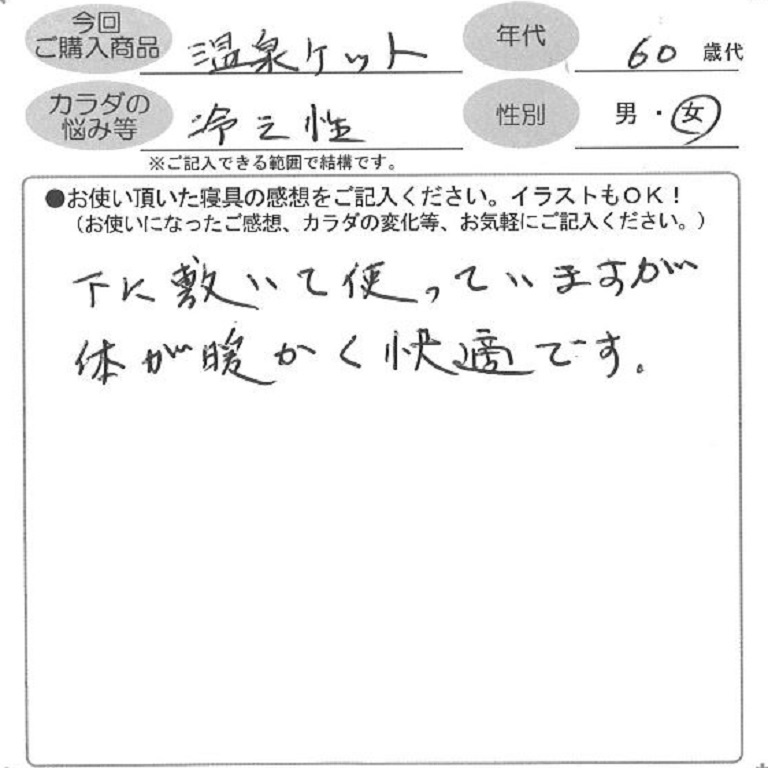 今回
ご購入商品 温泉ケット
年代 60 歳代
カラダの
悩み等 冷え性
性別 男・女
※ご記入できる範囲で結構です。
●お使い頂いた寝具の感想をご記入ください。イラストもOK！
（お使いになったご感想、カラダの変化等、お気軽にご記入ください。）
下に敷いて使っていますが
体が暖かく快適です。